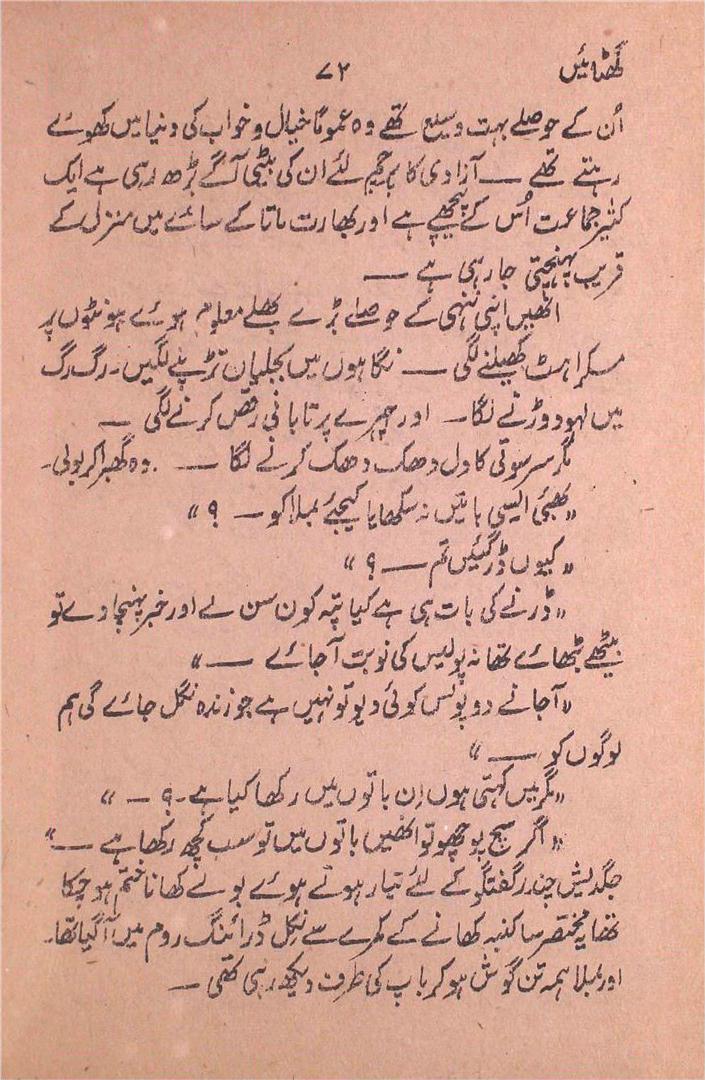 گھٹائیں ۷۲
اُن کے حوصلے بہت وسیع تھے وہ عموماً خیال و خواب کی دنیا میں کھوئے
رہتے تھے — آزادی کا پرچم لئے ان کی بیٹی آگے بڑھ رہی ہے ایک
کثیر جماعت اُس کے پیچھے ہے اور بھارت ماتا کے سائے میں منزل کے
قریب پہنچتی جا رہی ہے —
انھیں اپنی ننھی کے حوصلے بڑے بھلے معلوم ہوئے ہونٹوں پر
مسکراہٹ کھیلنے لگی — نگاہوں میں بجلیاں تڑپنے لگیں۔ رگ رگ
میں لہو دوڑنے لگا۔ اور چہرے پر تابانی رقص کرنے لگی —
مگر سرسوتی کا دل دھک دھک کرنے لگا —. وہ گھبرا کر بولی۔
"بھئی ایسی باتیں نہ سکھایا کیجئے بملا کو — ؟"
"کیوں ڈر گئیں تم — ؟"
"ڈرنے کی بات ہی ہے کیا پتہ کون سن لے اور خبر پہنچا دے تو
بیٹھے بٹھائے تھانہ پولیس کی نوبت آجائے —"
"آجانے دو پولس کوئی دیو تو نہیں ہے جو زندہ نگل جائے گی ہم
لوگوں کو —"
"مگر میں کہتی ہوں اِن باتوں میں رکھا کیا ہے۔؟ —"
"اگر سچ پوچھو تو انھیں باتوں میں تو سب کچھ رکھا ہے —"
جگدیش چندر گفتگو کے لئے تیار ہوتے ہوئے بولے کھانا ختم ہو چکا
تھا یہ مختصر سا کنبہ کھانے کے کمرے سے نکل ڈرائنگ روم میں آگیا تھا۔
اور بملا ہمہ تن گوش ہو کر باپ کی طرف دیکھ رہی تھی —